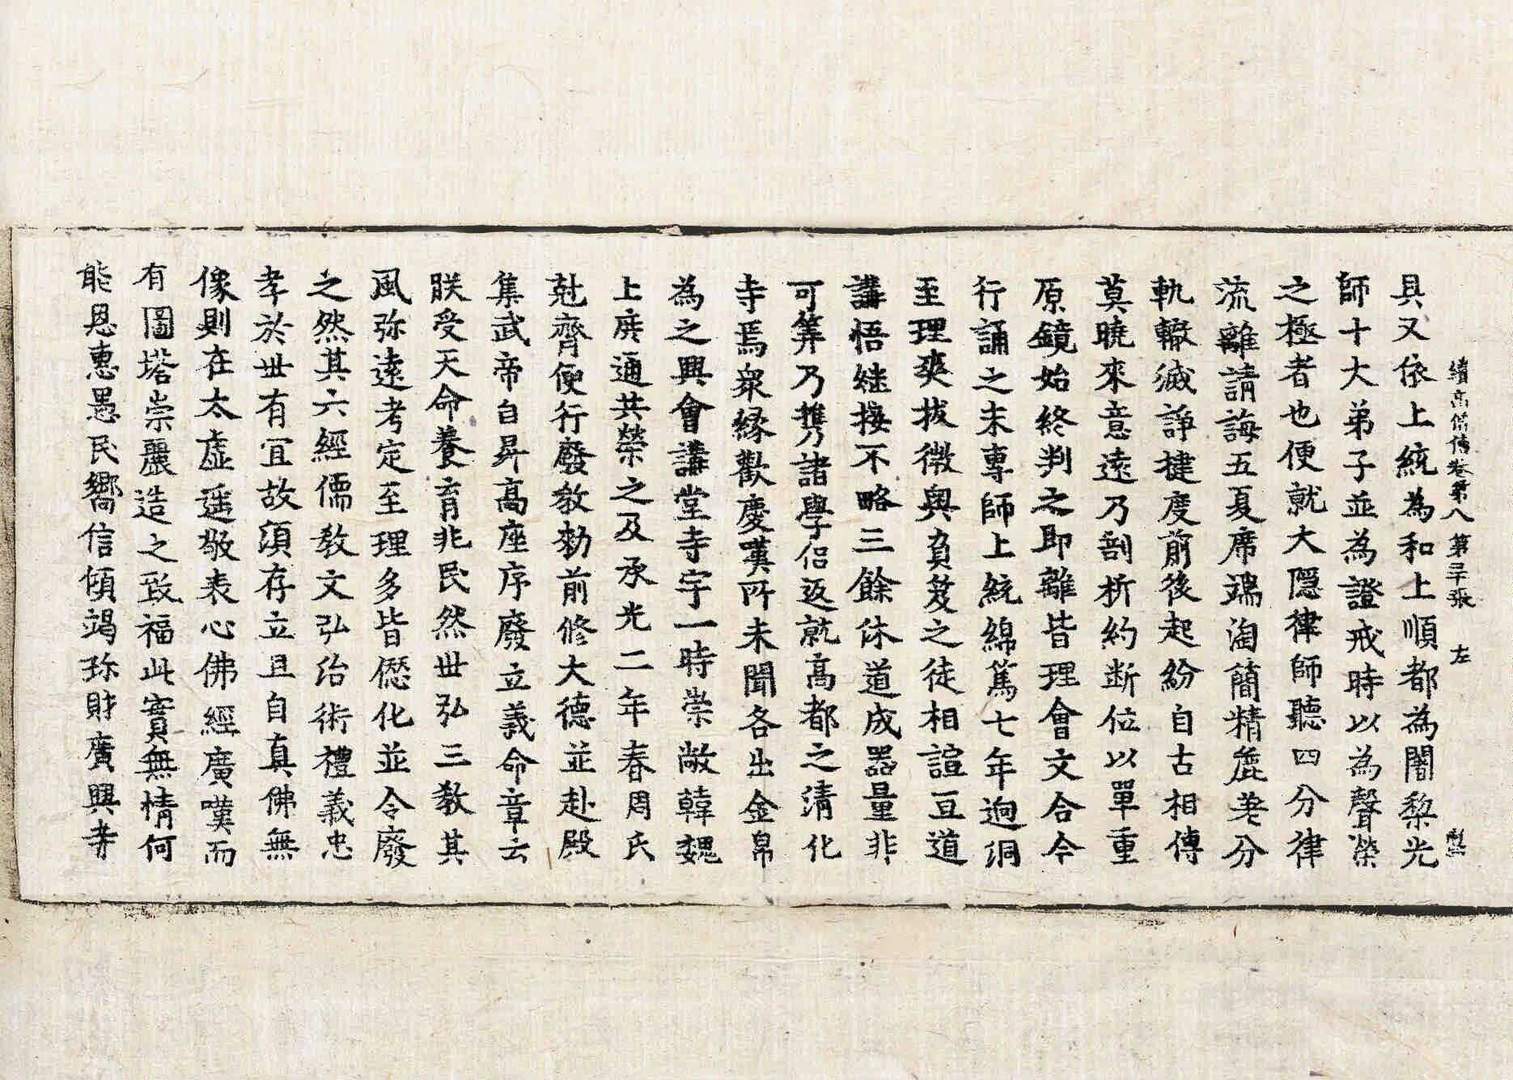 續高僧傳卷第八 第二十張 左
具又依上統為和上順都為闍梨光
師十大弟子並為證戒時以為聲榮
之極者也便就大隱律師聽四分律
流離請誨五夏席端淘簡精麁差分
軌轍滅諍揵度前後起紛自古相傳
莫曉來意遠乃剖析約断位以單重
原鏡始終判之即離皆理會文合今
行誦之末專師上統綿篤七年逈洞
至理爽拔微奧負笈之徒相諠亘道
講悟継接不略三餘沐道成器量非
可筭乃携諸學侣返就高都之清化
寺焉衆縁歡慶嘆所未聞各出金帛
為之興會講堂寺宇一時崇敞韓魏
上庶通共榮之及承光二年春周氏
尅齊便行廢教勑前修大德並赴殿
集武帝自昇高座序廢立義命章云
朕受天命養育兆民然世弘三教其
風弥遠考定至理多皆僁化並令廢
之然其六經儒教文弘治術禮義忠
孝於世有宜故須存立且自真佛無
像則在太虛遥敬表心佛經廣嘆而
有圖塔崇麗造之致福此實無情何
能恩惠愚民嚮信傾竭珎財廣興寺